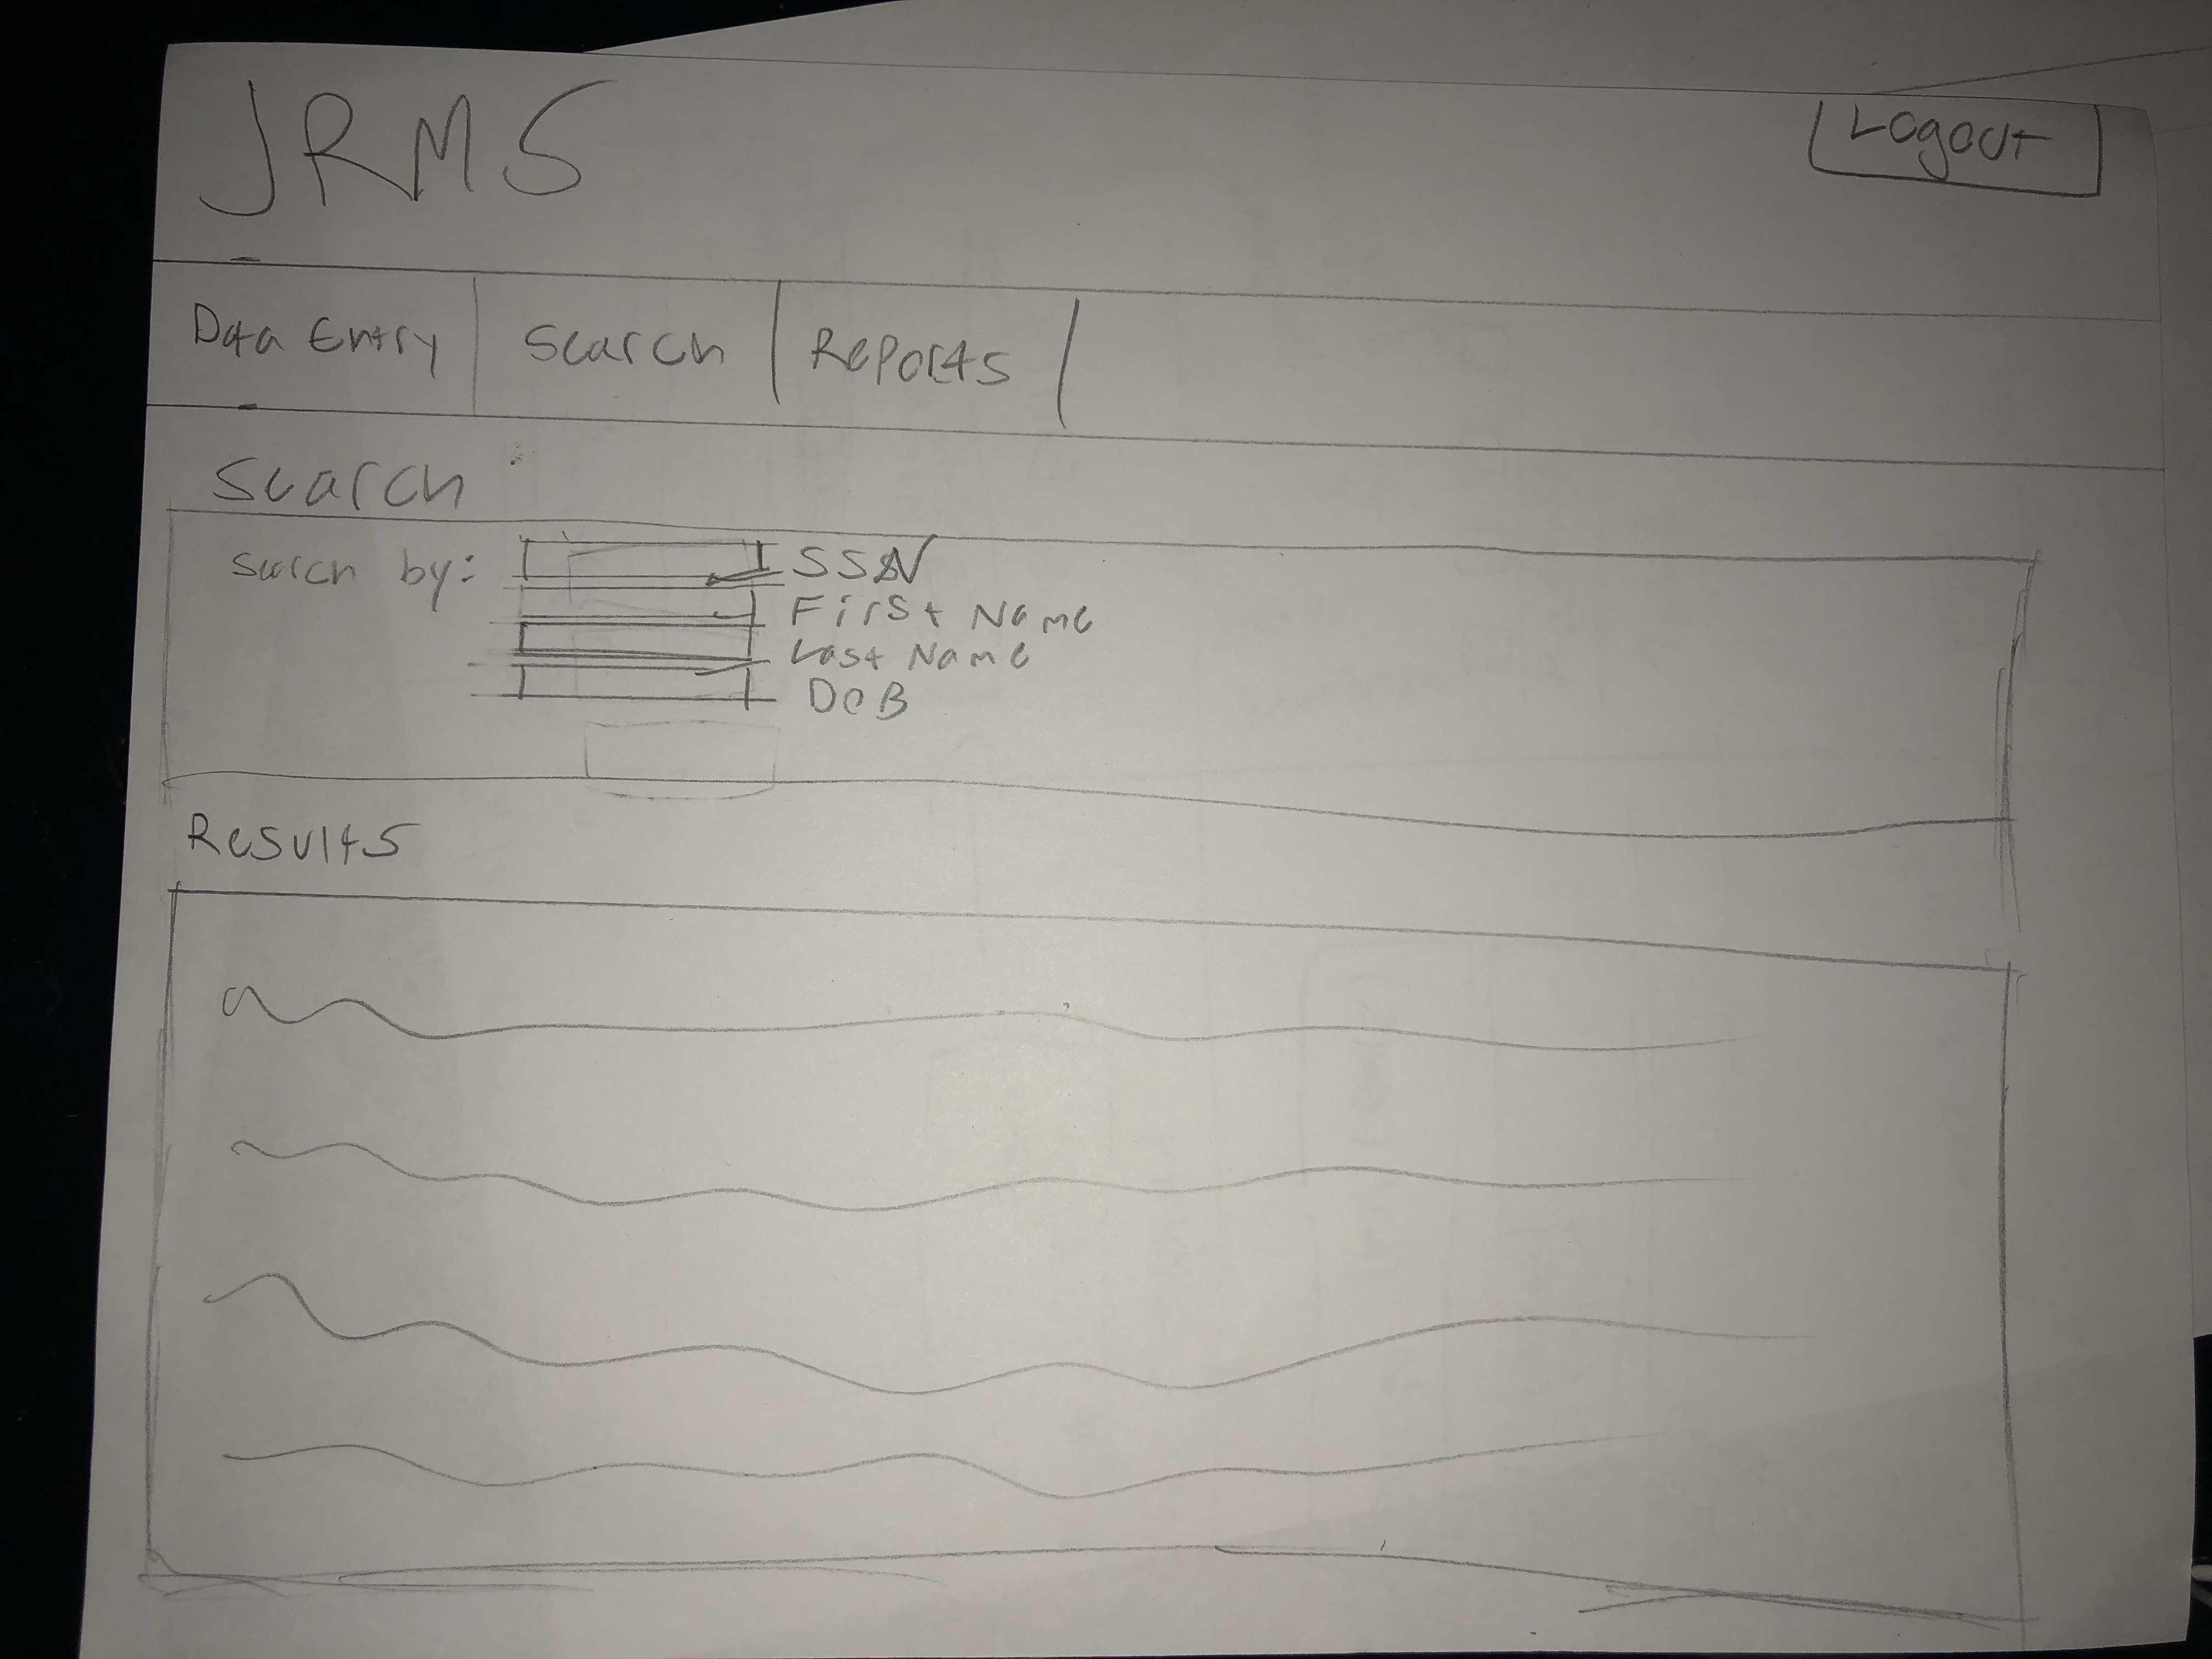 JRMS
Logout
Data Entry
Search
Reports
Search
Serch by:
SSN
First Name
Last Name
DOB
Results